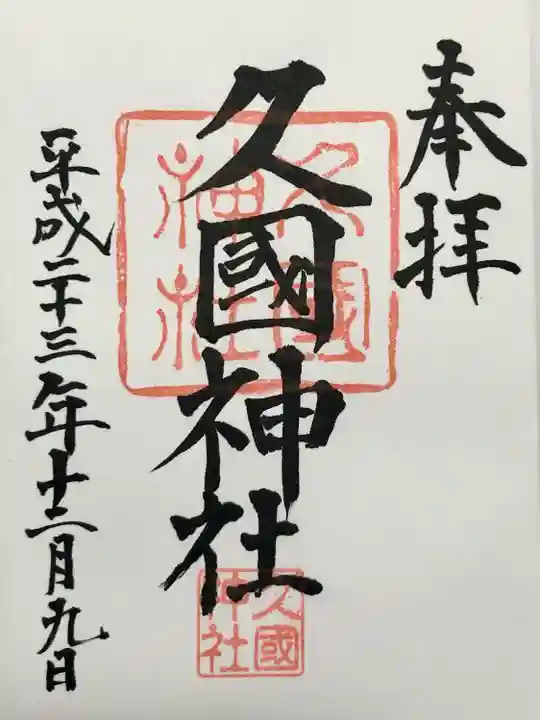 奉拝
久國神社
平成二十三年十二月九日
久國
神社
久國
神社